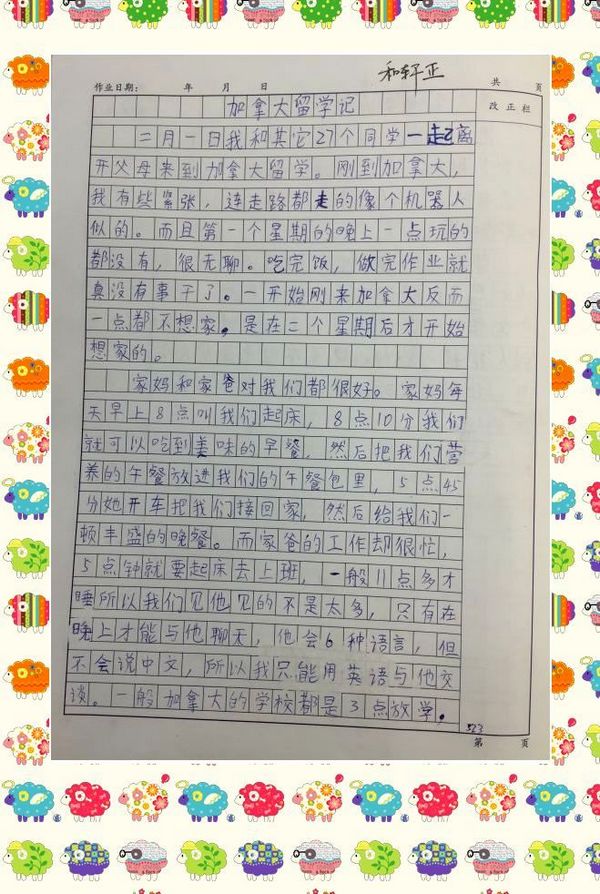 和轩正
作业日期： 年 月 日 共 页
加拿大留学记
改正栏
二月一日我和其它27个同学一起离
开父母来到加拿大留学。刚到加拿大，
我有些紧张，连走路都走的像个机器人
似的。而且第一个星期的晚上一点玩的
都没有，很无聊。吃完饭，做完作业就
真没有事干了。一开始刚来加拿大反而
一点都不想家。是在二个星期后才开始
想家的。
家妈和家爸对我们都很好。家妈每
天早上8点叫我们起床，8点10分我们
就可以吃到美味的早餐，然后把我们营
养的午餐放进我们的午餐包里，5点45
分她开车把我们接回家，然后给我们一
顿丰盛的晚餐。而家爸的工作却很忙，
5点钟就要起床去上班，一般11点多才
睡所以我们见他见的不是太多，只有在
晚上才能与他聊天，他会6种语言，但
不会说中文，所以我只能用英语与他交
谈。一般加拿大的学校都是3点放学。
323
第 页